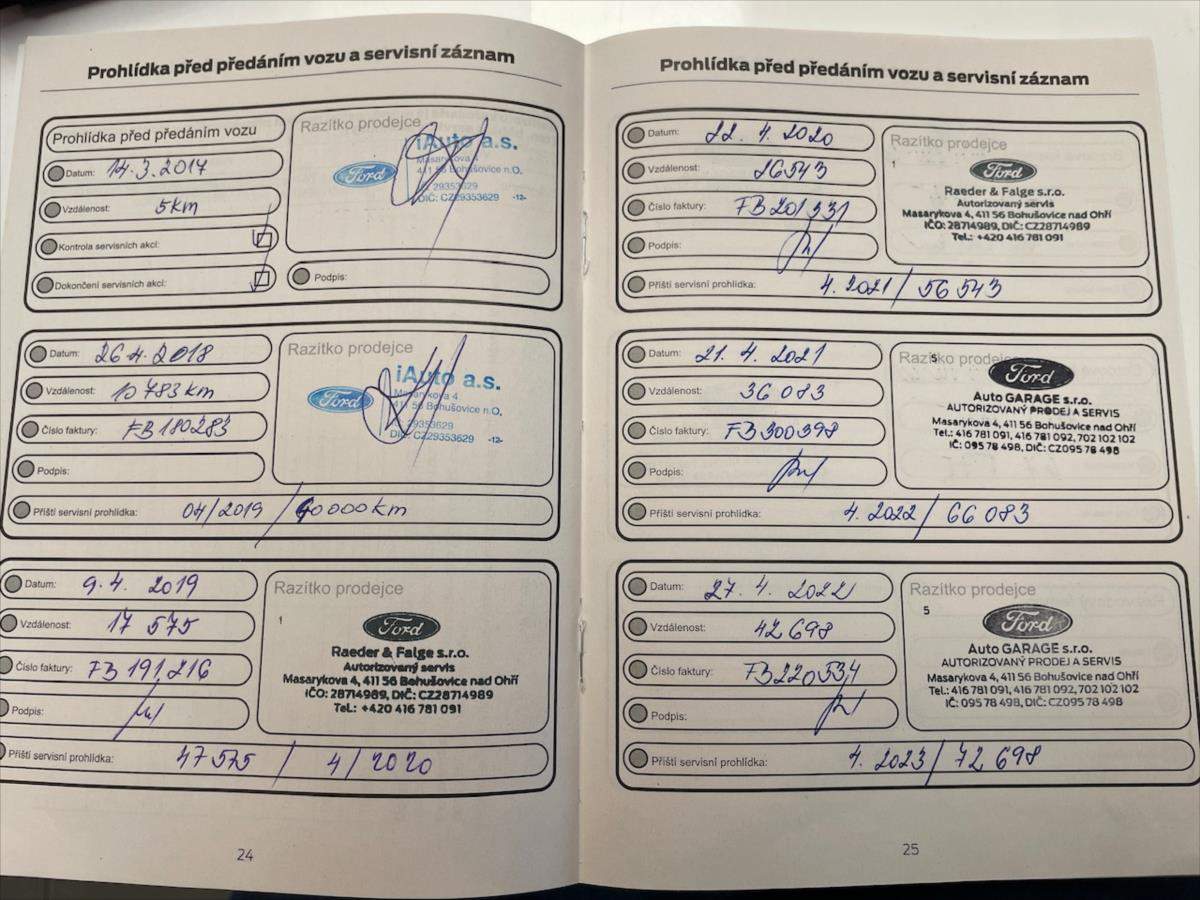 Prohlídka před předáním vozu a servisní záznam
Prohlídka před předáním vozu
Datum: 14.3.2017
Vzdálenost: 5km
Kontrola servisních akcí:
Dokončení servisních akcí:
Razítko prodejce
iAuto a.s.
Masarykova 4
411 56 Bohušovice n.O.
Ford
29353629
DIČ: CZ29353629 -12-
Podpis:
Datum: 26.4.2018
Vzdálenost: 10 783km
Číslo faktury: FB180283
Podpis:
Razítko prodejce
iAuto a.s.
Masarykova 4
411 56 Bohušovice n.O.
Ford
29353629
DIČ: CZ29353629 -12-
Příští servisní prohlídka: 04/2019 / 40000km
Datum: 9.4. 2019
Vzdálenost: 17 575
Číslo faktury: FB 191216
Podpis:
Razítko prodejce
1
Ford
Raeder & Falge s.r.o.
Autorizovaný servis
Masarykova 4, 411 56 Bohušovice nad Ohří
IČO: 28714989, DIČ: CZ28714989
Tel.: +420 416 781 091
Příští servisní prohlídka: 47575 / 4/2020
24
Prohlídka před předáním vozu a servisní záznam
Datum: 22. 4. 2020
Vzdálenost: 26543
Číslo faktury: FB201331
Podpis:
Razítko prodejce
1
Ford
Raeder & Falge s.r.o.
Autorizovaný servis
Masarykova 4, 411 56 Bohušovice nad Ohří
IČO: 28714989, DIČ: CZ28714989
Tel.: +420 416 781 091
Příští servisní prohlídka: 4. 2021 / 56 543
Datum: 21. 4. 2021
Vzdálenost: 36 083
Číslo faktury: FB300398
Podpis:
Razítko prodejce
5
Ford
Auto GARAGE s.r.o.
AUTORIZOVANÝ PRODEJ A SERVIS
Masarykova 4, 411 56 Bohušovice nad Ohří
Tel.: 416 781 091, 416 781 092, 702 102 102
IČ: 095 78 498, DIČ: CZ095 78 498
Příští servisní prohlídka: 4. 2022 / 66 083
Datum: 27. 4. 2022
Vzdálenost: 42 698
Číslo faktury: FB220534
Podpis:
Razítko prodejce
5
Ford
Auto GARAGE s.r.o.
AUTORIZOVANÝ PRODEJ A SERVIS
Masarykova 4, 411 56 Bohušovice nad Ohří
Tel.: 416 781 091, 416 781 092, 702 102 102
IČ: 095 78 498, DIČ: CZ095 78 498
Příští servisní prohlídka: 4. 2023 / 72 698
25